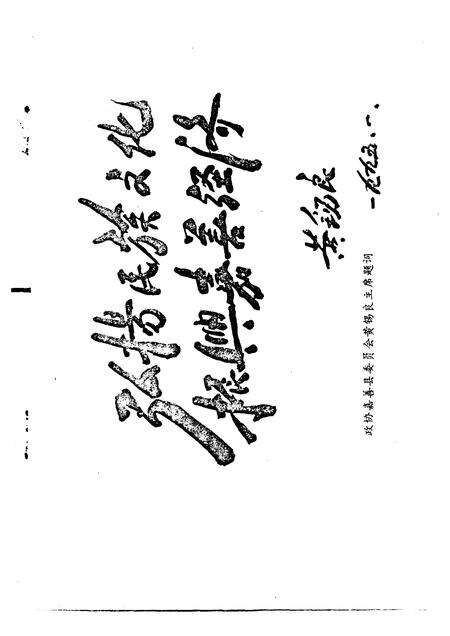 弘揚民族文化
振興嘉善经济
黄锡良
一九九五、一、
政协嘉善县委员会黄锡良主席题词